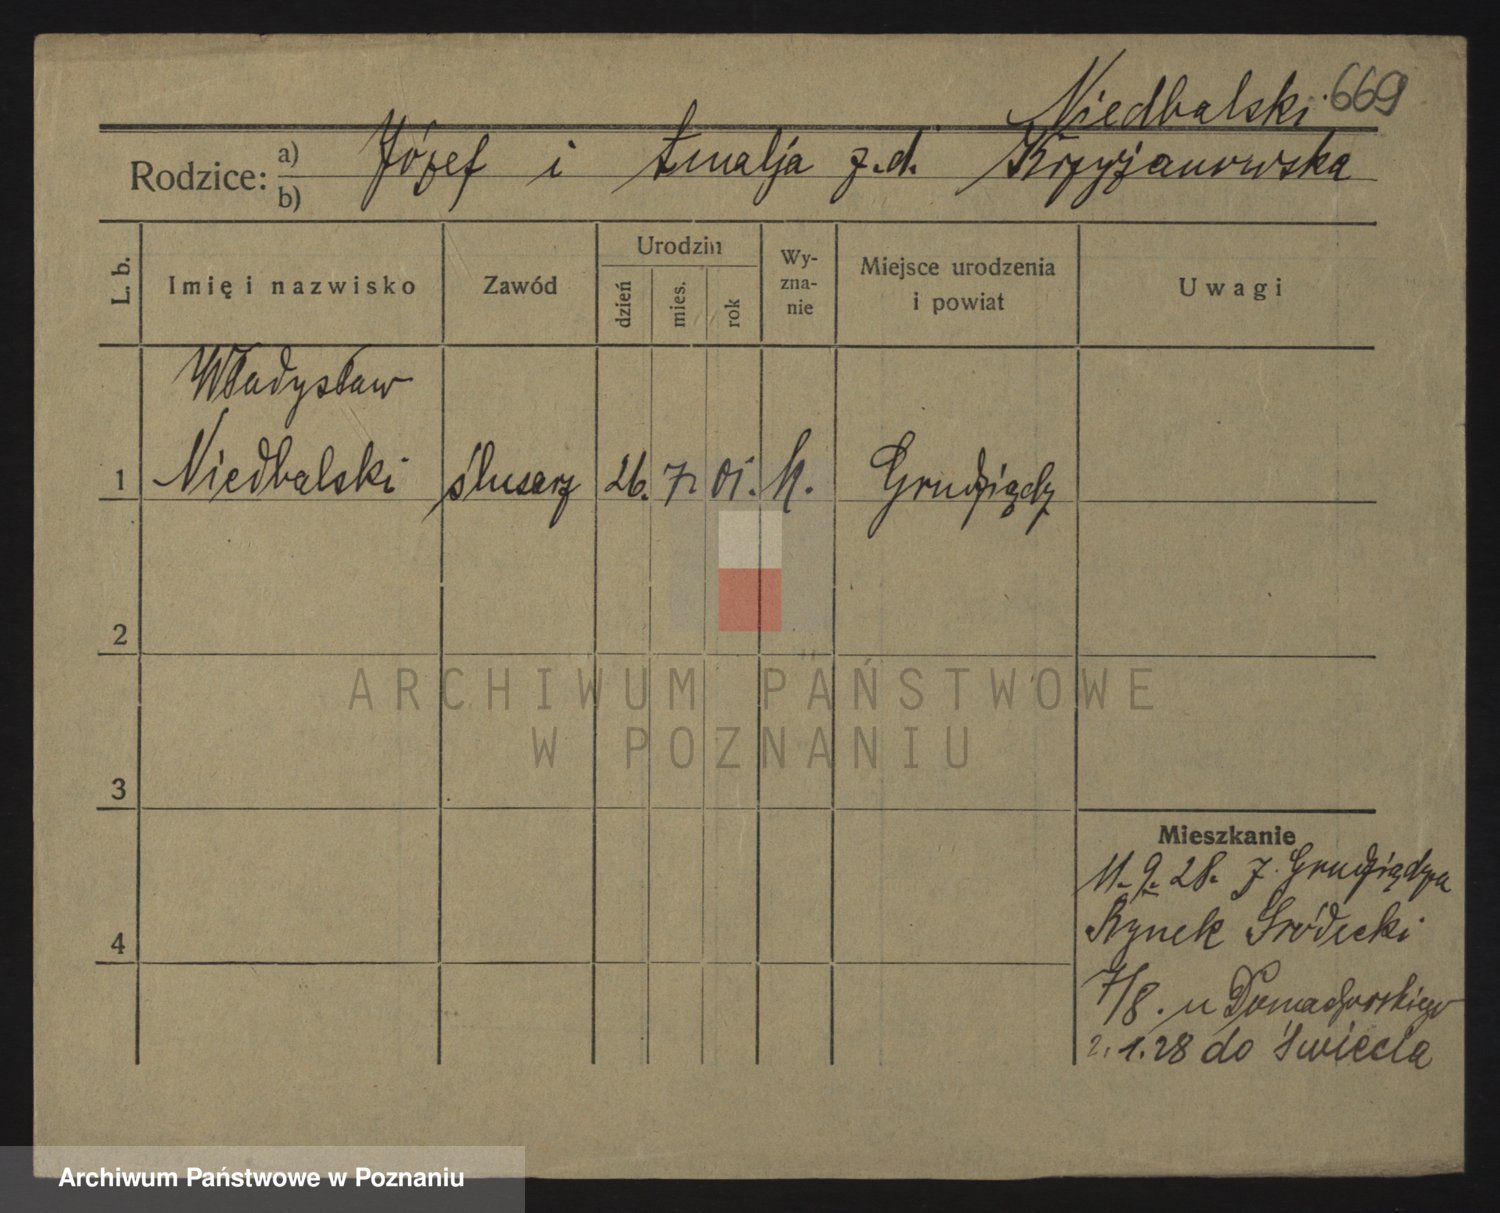 Niedbalski 669
Rodzice: a) b) Józef i Amalja z.d. Krzyżanowska
L. b.
Imię i nazwisko
Zawód
Urodzin
dzień
mies.
rok
Wy-
zna-
nie
Miejsce urodzenia
i powiat
Uwagi
Władysław
1 Niedbalski ślusarz 26. 7. 01. k. Grudziądz
2
3
4
Mieszkanie
11. 9. 28. z Grudziądza
Rynek Śródecki
7/8. u
2. 1. 28 do Świecia
ARCHIWUM PAŃSTWOWE
W POZNANIU
Archiwum Państwowe w Poznaniu